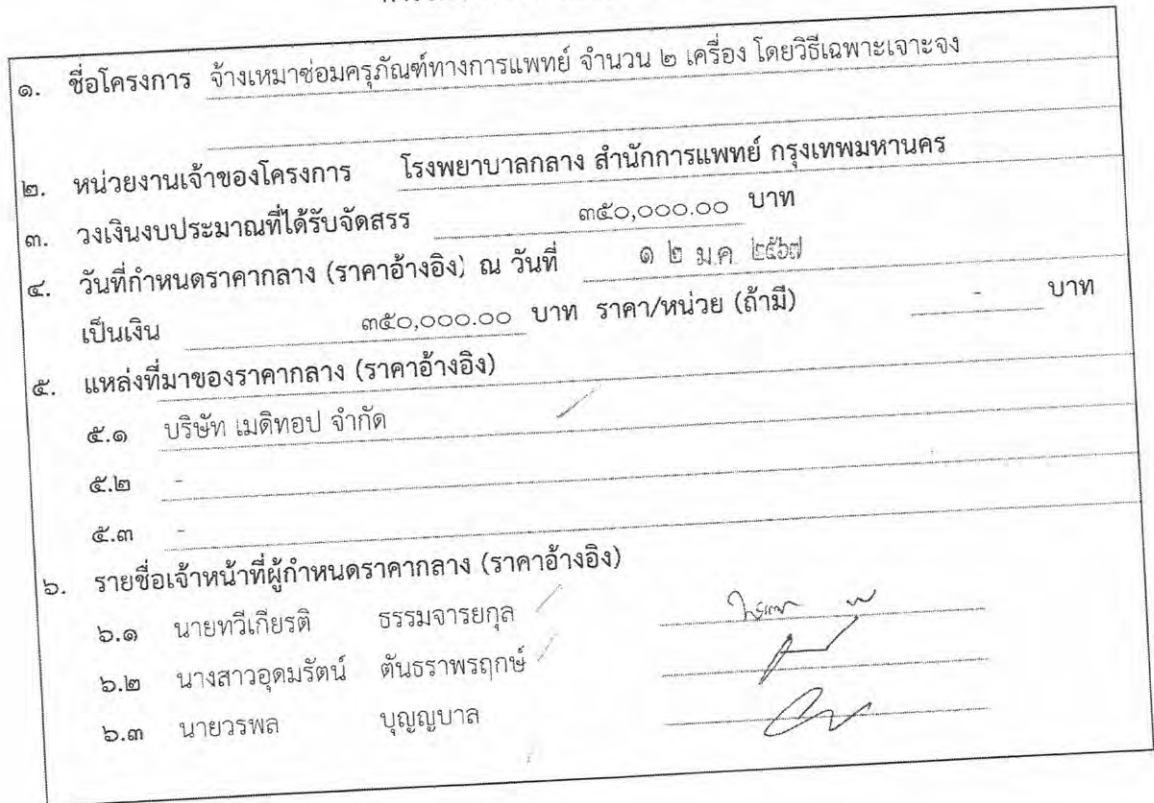 ๑. ชื่อโครงการ จ้างเหมาซ่อมครุภัณฑ์ทางการแพทย์ จำนวน ๒ เครื่อง โดยวิธีเฉพาะเจาะจง
๒. หน่วยงานเจ้าของโครงการ โรงพยาบาลกลาง สำนักการแพทย์ กรุงเทพมหานคร
๓. วงเงินงบประมาณที่ได้รับจัดสรร ๓๕๐,๐๐๐.๐๐ บาท
๔. วันที่กำหนดราคากลาง (ราคาอ้างอิง) ณ วันที่ ๑ ๒ ม.ค. ๒๕๖๗
เป็นเงิน ๓๕๐,๐๐๐.๐๐ บาท ราคา/หน่วย (ถ้ามี) - บาท
๕. แหล่งที่มาของราคากลาง (ราคาอ้างอิง)
๕.๑ บริษัท เมดิทอป จำกัด
๕.๒ -
๕.๓ -
๖. รายชื่อเจ้าหน้าที่ผู้กำหนดราคากลาง (ราคาอ้างอิง)
๖.๑ นายทวีเกียรติ ธรรมจารยกุล
๖.๒ นางสาวอุดมรัตน์ ตันธราพรฤกษ์
๖.๓ นายวรพล บุญญบาล